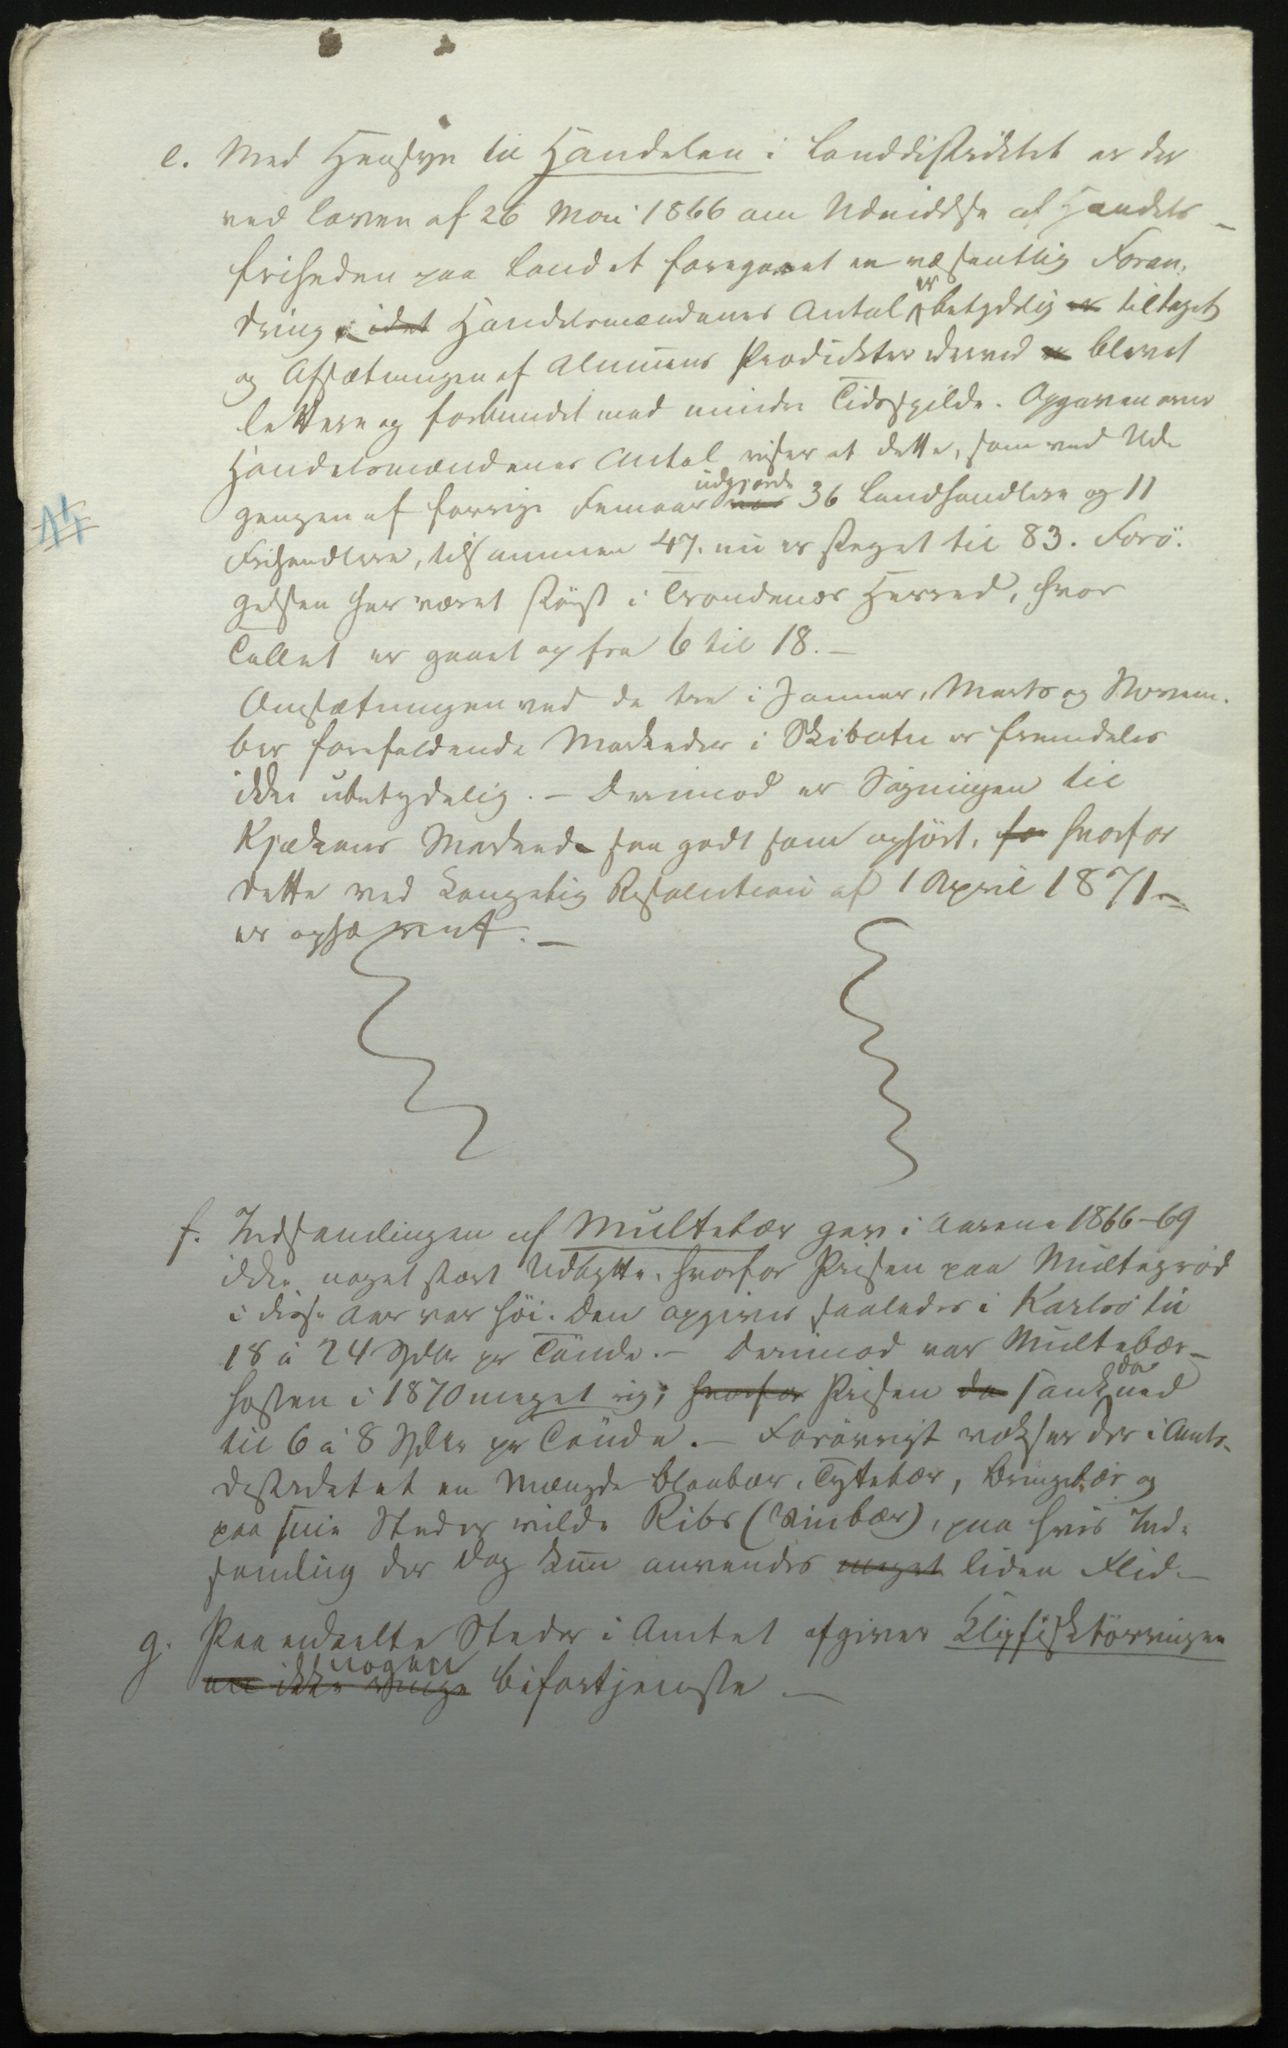 e. Med Hensyn til Handelen i Landdistriktet er der
ved Loven af 26 Mai 1866 om Udvidelse af Handels-
friheden paa Landet foregaaet en væsentlig Foran-
dring, idet Handelsmændenes Antal er betydelig er tiltaget
og Afsætningen af Almuens Produkter derved er blevet
lettere og forbundet med mindre Tidsspilde. Opgaven over
Handelsmændenes Antal viser at dette, som ved Ud-
gangen af forrige Femaar var udgjorde 36 Landhandlere og 11
Frihandlere, tilsammen 47. nu er steget til 83. Forø-
gelsen har været størst i Trondenæs Herred, hvor
Tallet er gaaet op fra 6 til 18. —
Omsætningen ved de tre i Januar, Marts og Novem-
ber forefaldende Markeder i Skibotn er fremdeles
ikke ubetydelig. — Derimod er Søgningen til
Kjækens Marked saa godt som ophørt, hvorfor
dette ved Kongelig Resolution af 1 April 1871 —
er ophævet. —
44
f. Indsamlingen af Multebær gav i Aarene 1866-69
ikke noget stort Udbytte, hvorfor Prisen paa Multegrød
i disse Aar var høi. Den opgives saaledes i Karlsø til
18 à 24 Spdlr pr Tønde. — Derimod var Multebær-
høsten i 1870 meget rig, hvorfor Prisen da sank da ned
til 6 à 8 Spdlr pr Tønde. — Forøvrigt vokser der i Amts-
distriktet en Mængde Blaabær, Tytebær, Bringebær og
paa sine Steder vilde Ribs (Vinbær), paa hvis Ind-
samling der dog kun anvendes meget liden Flid. —
g. Paa enkelte Steder i Amtet afgiver Klipfisktørringen
en ikke ringe nogen Bifortjeneste —